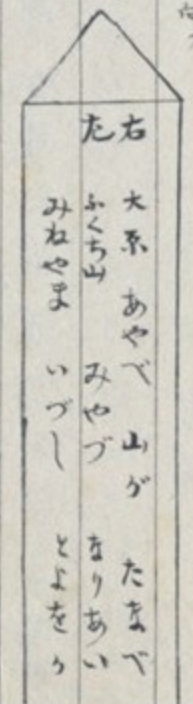 右 大原 あやべ 山が たなべ
左 ふくち山 みやづ なりあい
みねやま いづし とよをか